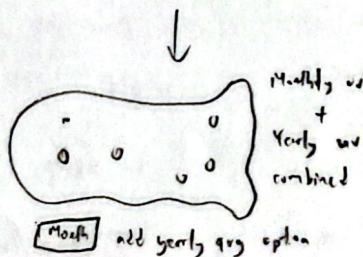 Monthly av
+
Yearly av
combined
Month add yearly avg option